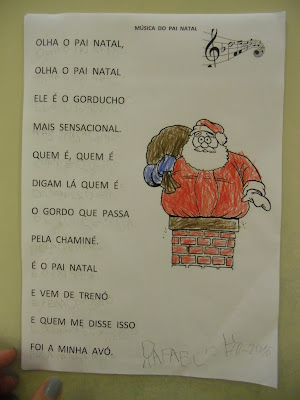 MÚSICA DO PAI NATAL
OLHA O PAI NATAL,
OLHA O PAI NATAL
ELE É O GORDUCHO
MAIS SENSACIONAL.
QUEM É, QUEM É
DIGAM LÁ QUEM É
O GORDO QUE PASSA
PELA CHAMINÉ.
É O PAI NATAL
E VEM DE TRENÓ
E QUEM ME DISSE ISSO
FOI A MINHA AVÓ.